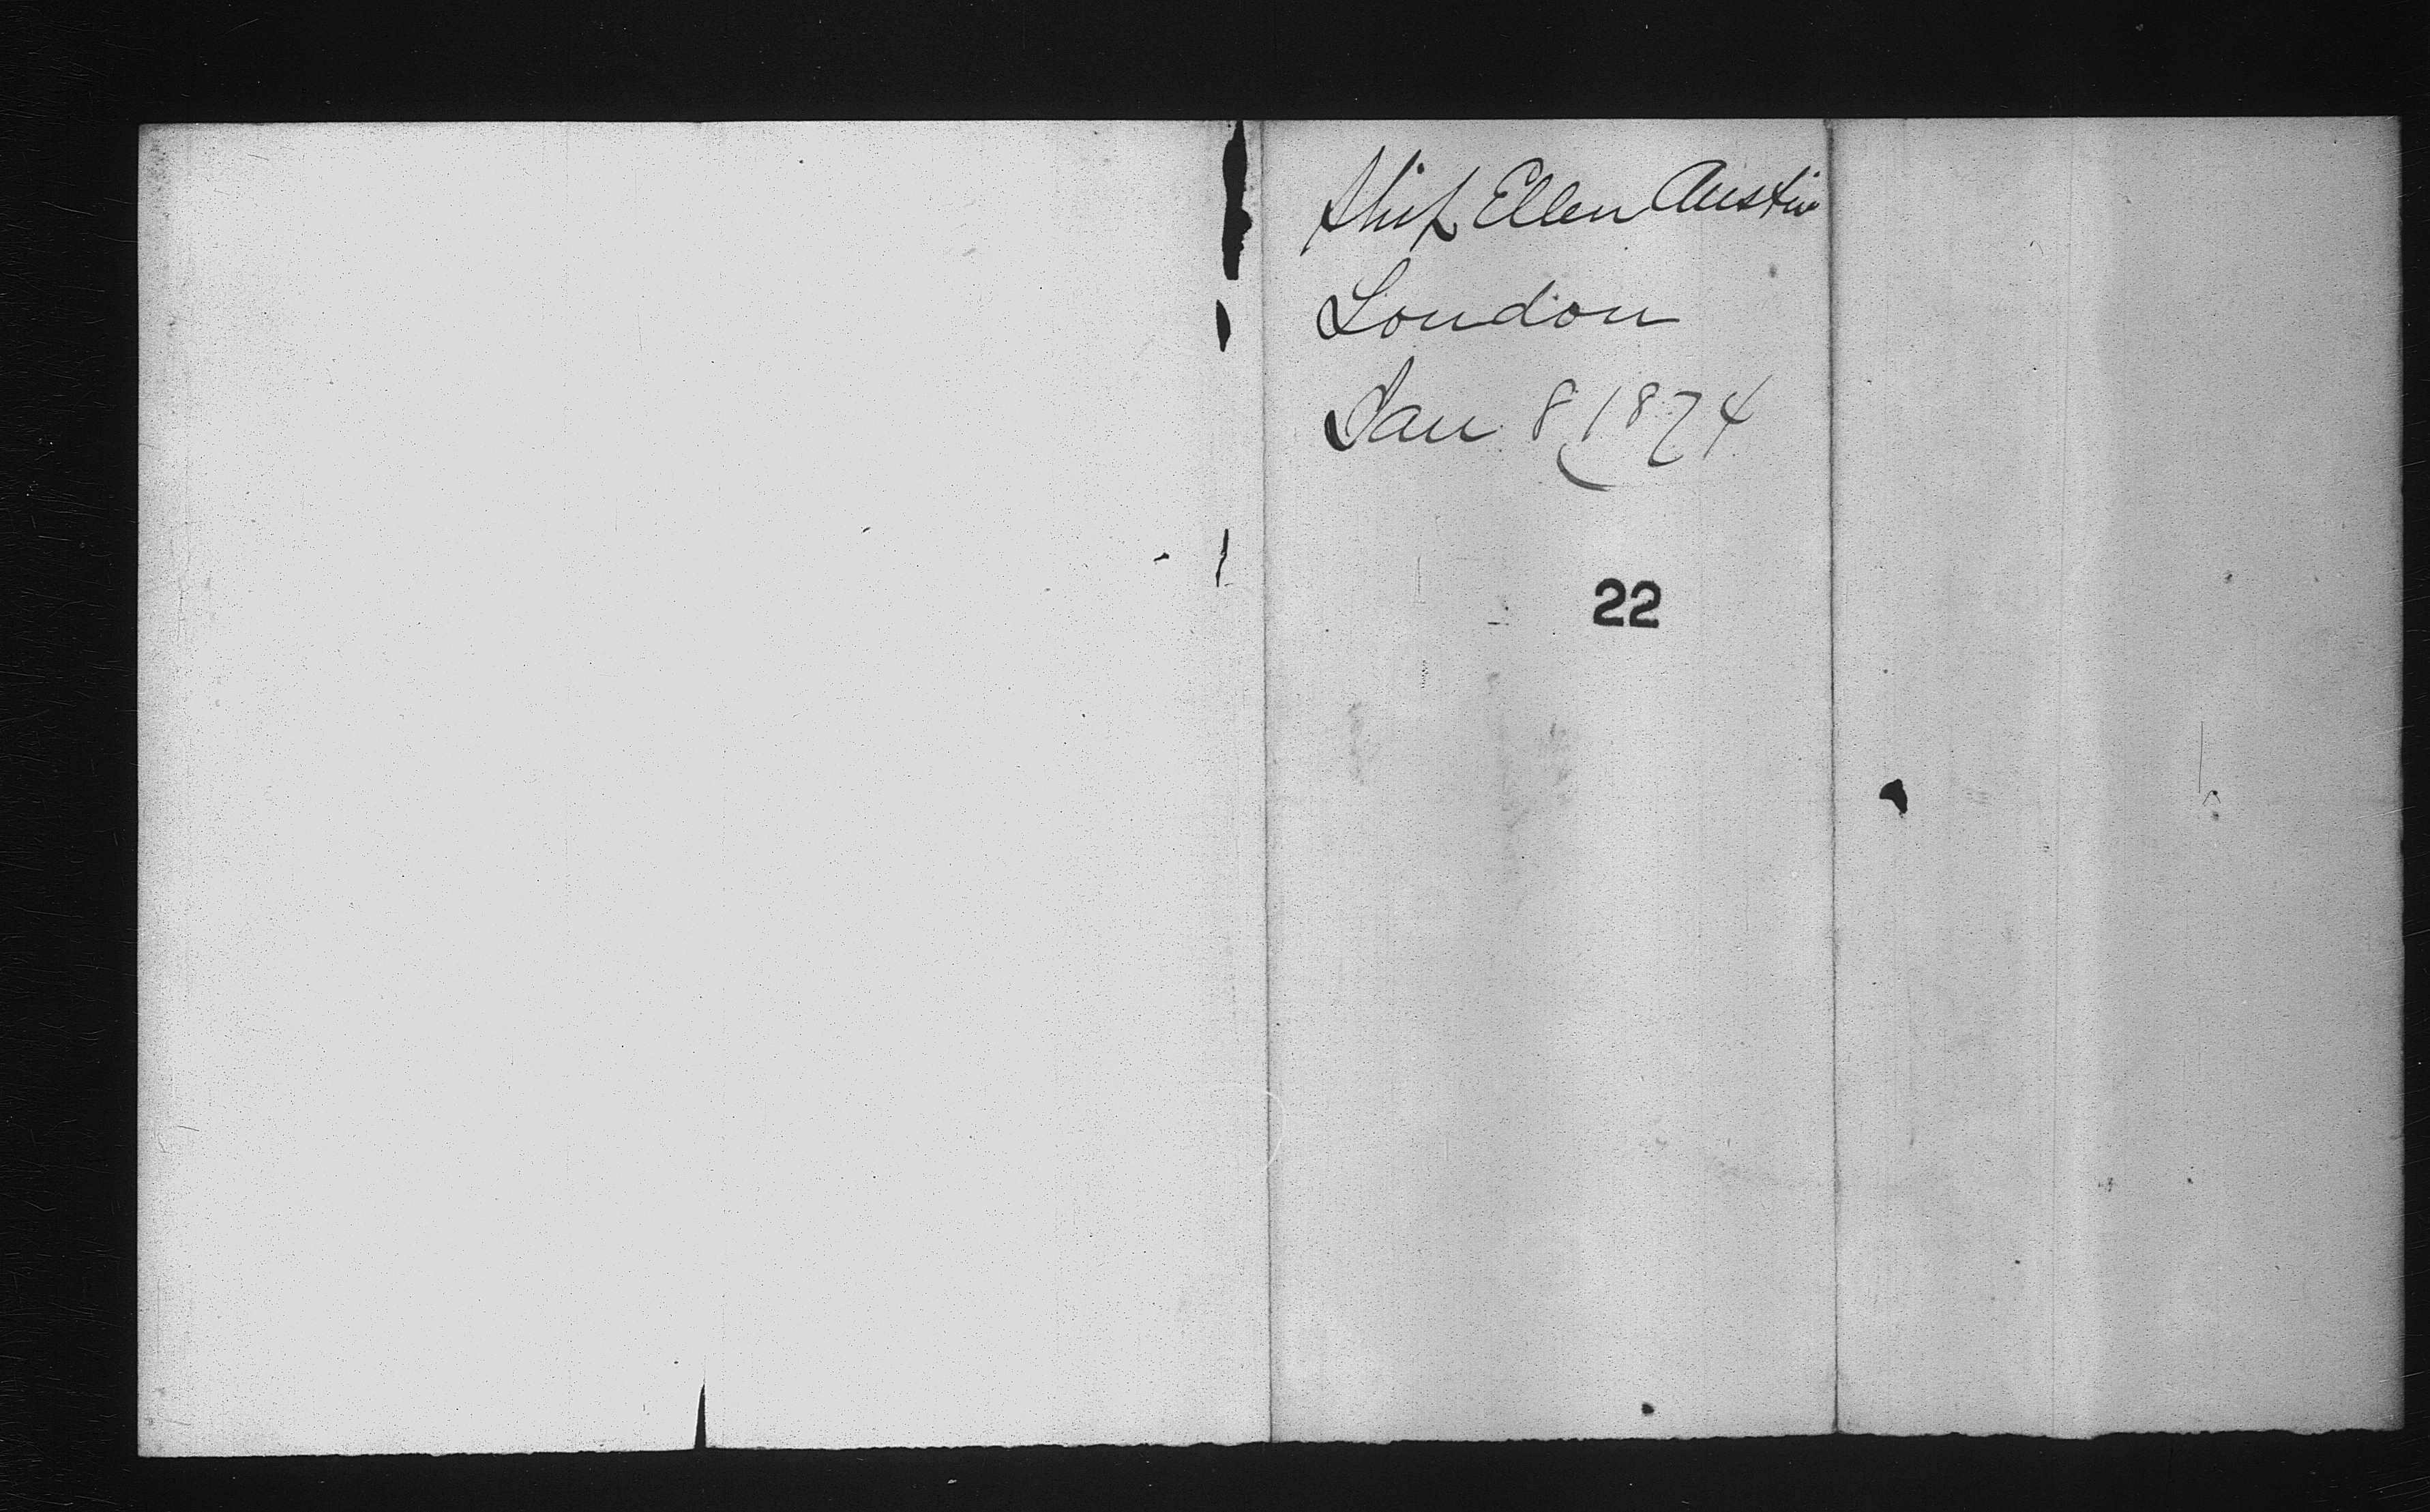 Ship Ellen Austin
London
Jan 8 1874
22